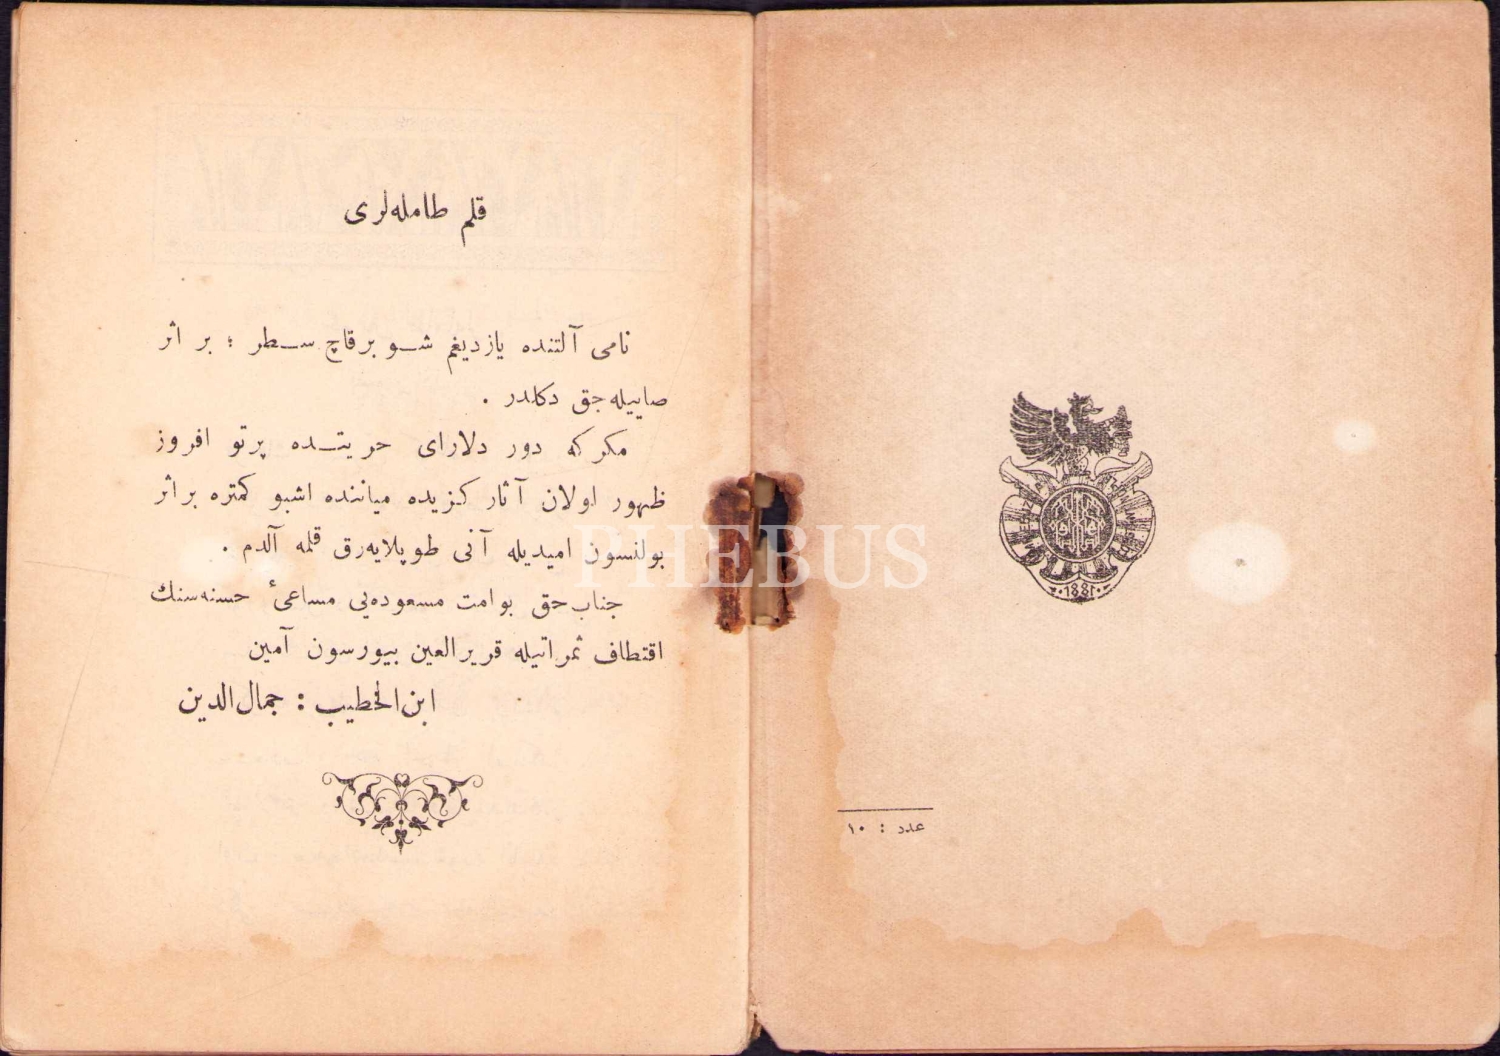 عدد : ١٠
١٨٨١
قلم طامله‌لری
نامی آلتنده یازدیغم شو برقاچ سطر ؛ بر اثر
صاییله‌جق دکلدر .
مکرکه دور دلارای حریتده پرتو افروز
ظهور اولان آثار کزیده میاننده اشبو کمتره براثر
بولنسون امیدیله آنی طوپلایه‌رق قلمه آلدم .
جناب‌حق بو امت مسعوده‌یی مساعیٔ حسنه‌سنك
اقتطاف ثمراتیله قریرالعین بیورسون آمین
ابن‌الخطیب : جمال‌الدین
PHEBUS